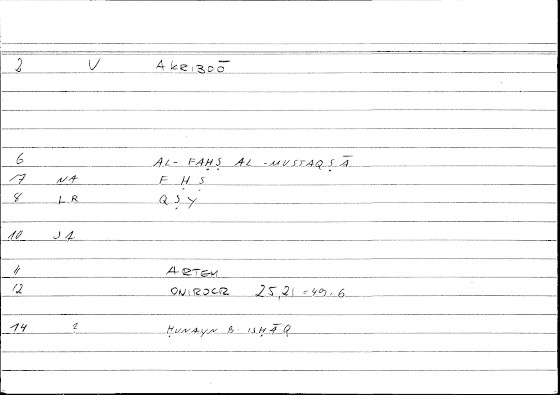 2 V AKRIBOŌ
6 AL-FAḤṢ AL-MUSTAQṢĀ
17 NA F Ḥ Ṣ
8 LR Q Ṣ Y
10 J1
11 ARTEM
12 ONIROCR 25,21 = 49.6
14 2 ḤUNAYN B. ISḤĀQ